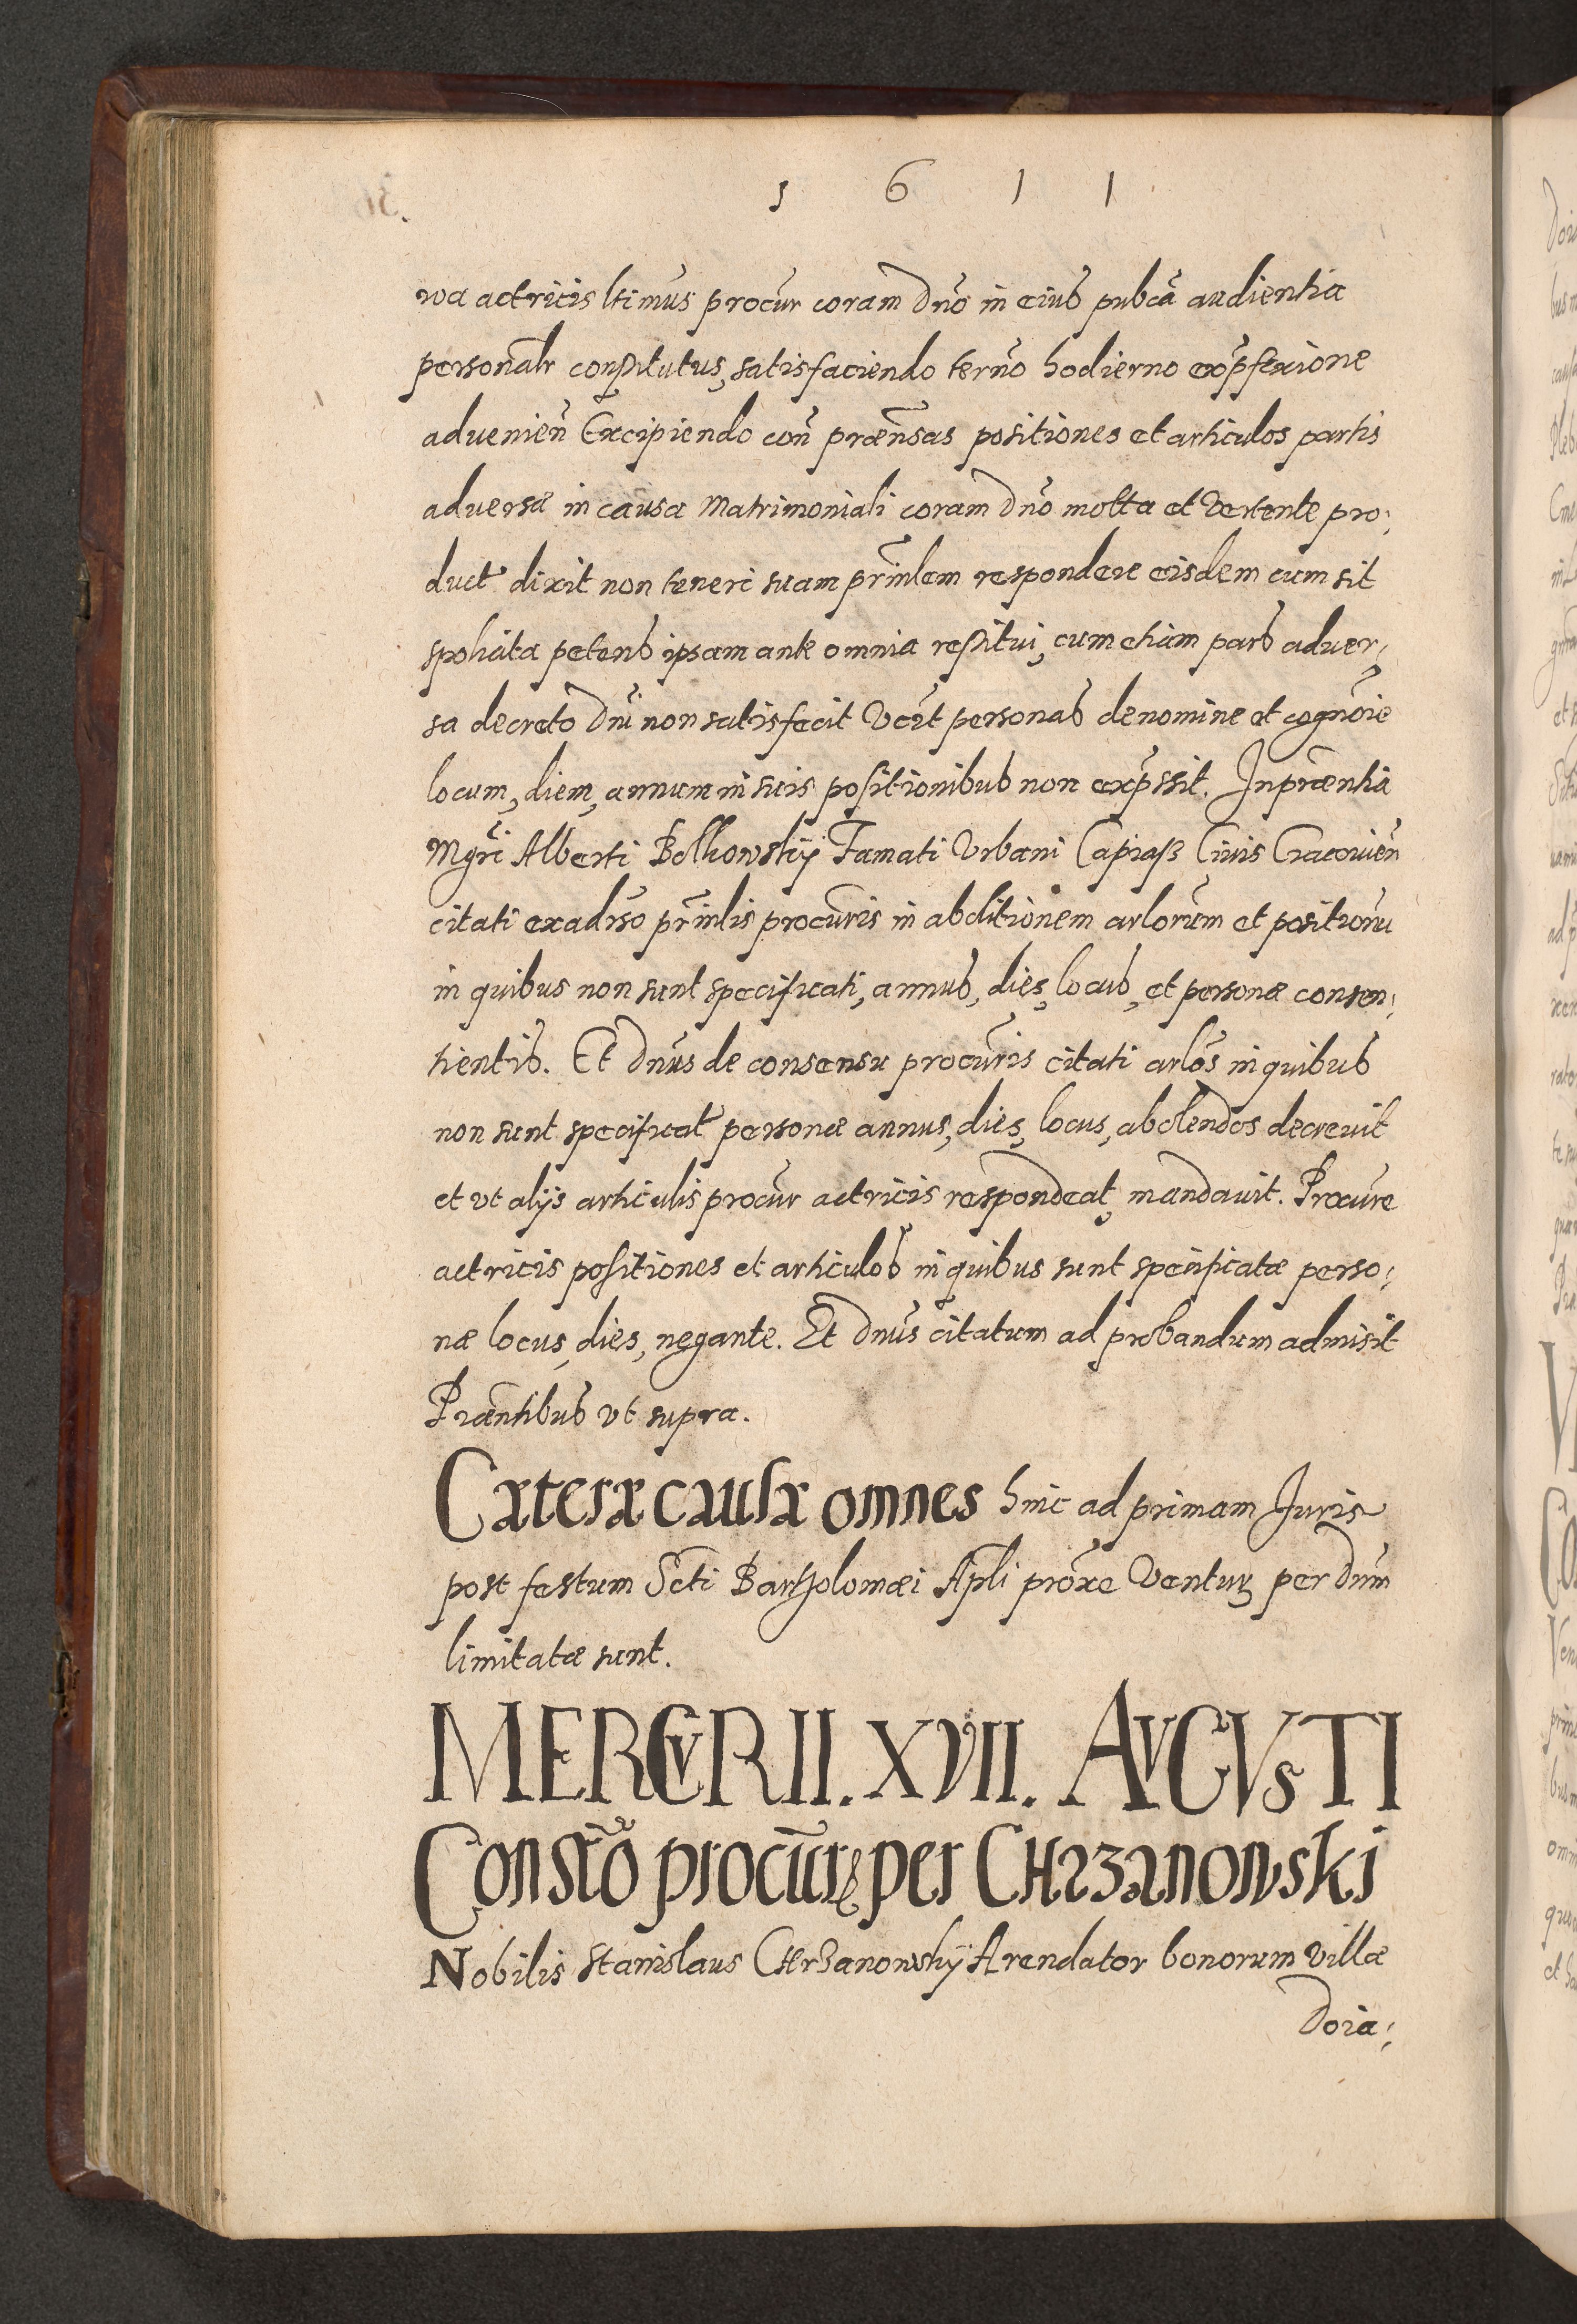 1 6 1 1
wa actricis ltimus procur coram Dno in eius pubca audientia
personalr constitutus, satisfaciendo terno hodierno
advenien Excipiendo con praensas positiones et articulos partis
adversæ in causa Matrimoniali coram Dno motta et Vertente pro,
duct dixit non teneri suam prinlem respondere eisdem cum sit
spoliata petens ipsam ante omnia restitui, cum etiam pars adver,
sa decreto Dni non satisfecit Vert personas de nomine et cognoie
locum, diem, annum in suis positionibus non expssit. In præntia
Mgri Alberti Belkowskÿ Famati Vrbani Capraß Civis Cracovien
citati exadrso prinlis procuris in abolitionem arlorum et positionu
in quibus non sunt specificati, annus, dies, locus, et personæ consen,
tientis. Et Dnus de consensu procuris citati arlos in quibus
non sunt specificat personæ annus, dies, locus, abolendos decrevit
et vt alijs articulis procur actricis respondeat, mandavit. Procure
actricis positiones et articulos in quibus sunt specificatæ perso,
næ locus, dies, negante. Et Dnus citatum ad probandum admisit
Præntibus vt supra.
Cæteræ causæ omnes hinc ad primam Juris
post festum Scti Bartholomæi Apli proxe Ventur per Dnm
limitatæ sunt.
MERCVRII. XVII. AVGVSTI
Constõ procur per CHrzanowski
Nobilis Stanislaus CHrzanowskÿ Arendator bonorum Villæ
Doia,